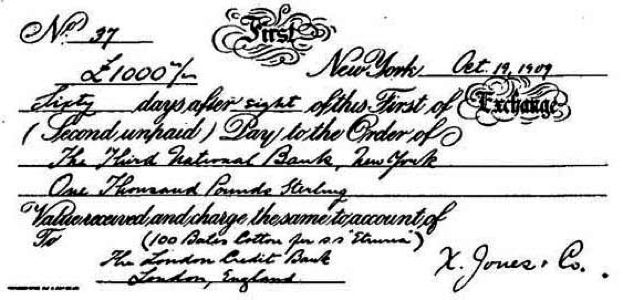 No. 37 First
£1000 0/00 New York Oct. 19, 1909
Sixty days after sight of this First of Exchange
(Second unpaid) Pay to the Order of
The Third National Bank, New York
One Thousand Pounds Sterling
Value received and charge the same to account of
To (100 Bales Cotton per s.s "Etruria")
The London Credit Bank
London, England
X. Jones & Co.